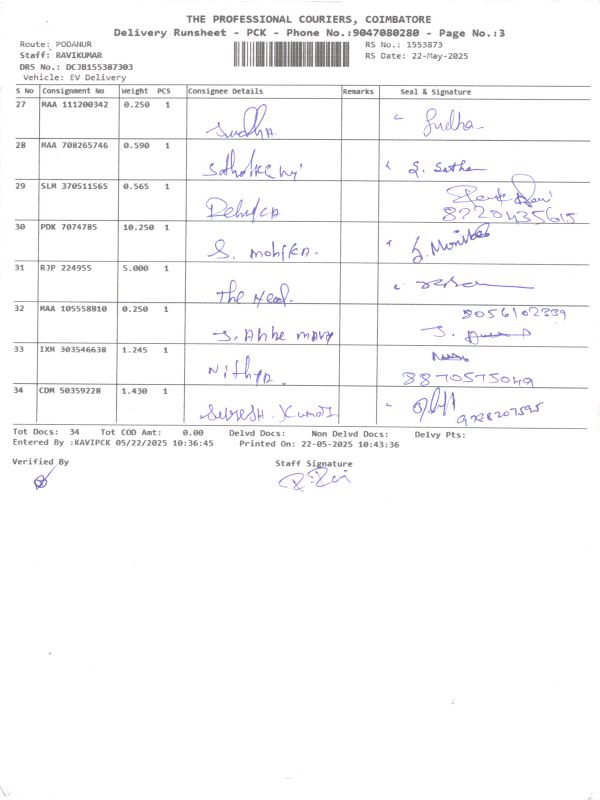 THE PROFESSIONAL COURIERS, COIMBATORE
Delivery Runsheet - PCK - Phone No.:9047080280 - Page No.:3
Route: PODANUR RS No.: 1553873
Staff: RAVIKUMAR RS Date: 22-May-2025
DRS No.: DCJB155387303
Vehicle: EV Delivery
S No Consignment No Weight PCS Consignee Details Remarks Seal & Signature
27 MAA 111200342 0.250 1
Sudha Sudha
28 MAA 708265746 0.590 1
S. Satha
29 SLM 370511565 0.565 1
8220435615
30 PDK 7074785 10.250 1
S. mohika.
31 RJP 224955 5.000 1
The Head.
32 MAA 105558810 0.250 1 8056102339
J. Anne mary J.
33 IXM 303546638 1.245 1
Nithya 8870575049
34 CDM 50359228 1.430 1
Suresh. Kumar 9788207595
Tot Docs: 34 Tot COD Amt: 0.00 Delvd Docs: Non Delvd Docs: Delvy Pts:
Entered By :KAVIPCK 05/22/2025 10:36:45 Printed On: 22-05-2025 10:43:36
Verified By Staff Signature